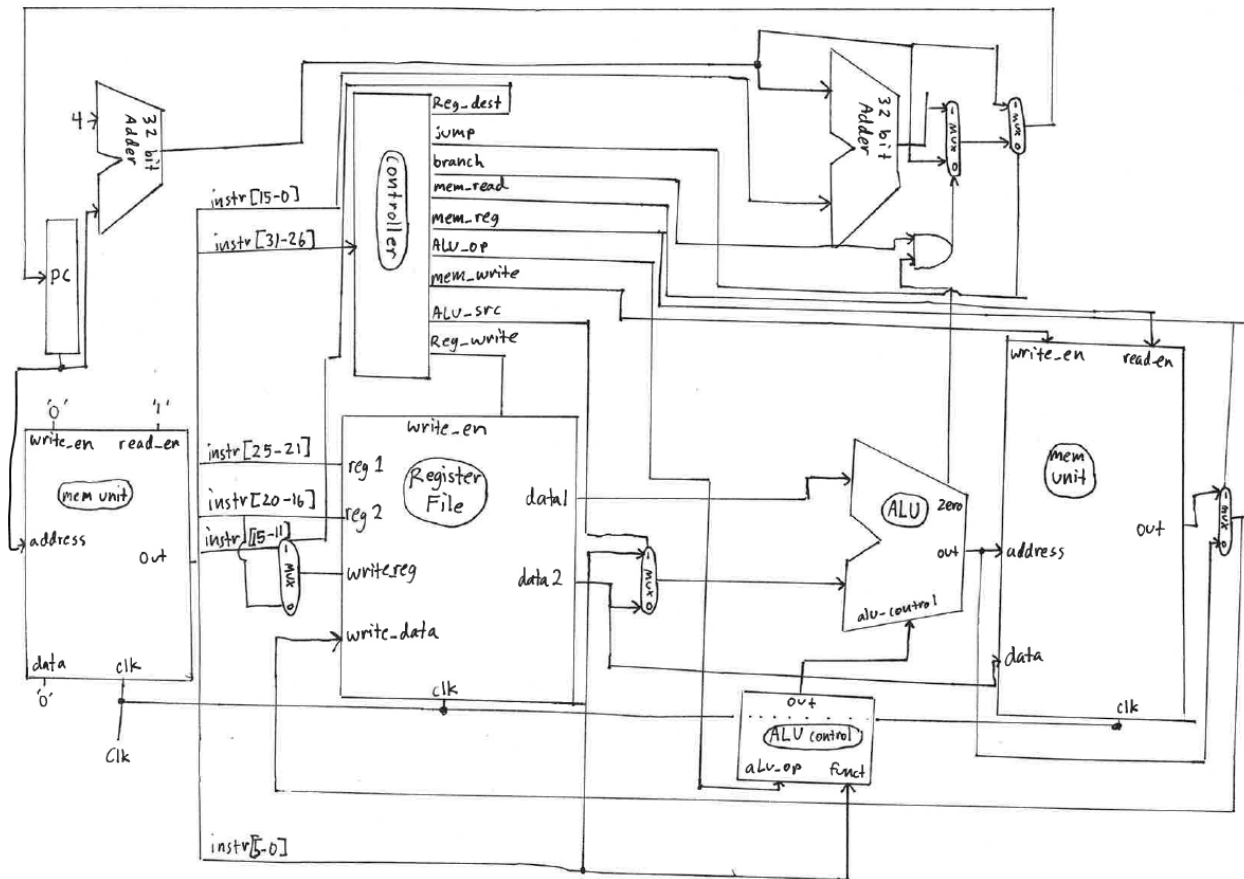 4
32 bit
Adder
PC
instr[15-0]
instr[31-26]
controller
Reg_dest
jump
branch
mem_read
mem_reg
ALU_op
mem_write
ALU_src
Reg_write
32 bit
Adder
1 mux 0
1 mux 0
'0'
'1'
write_en
read_en
mem unit
address
Out
data
clk
'0'
Clk
instr[25-21]
instr[20-16]
instr[15-11]
1 mux 0
write_en
reg 1
Register
File
reg 2
data1
write_reg
data2
write_data
clk
1 mux 0
ALU
Zero
out
alu-control
out
ALU control
aLu_op
funct
write_en
read_en
mem
unit
Out
address
data
clk
1 mux 0
instr[5-0]